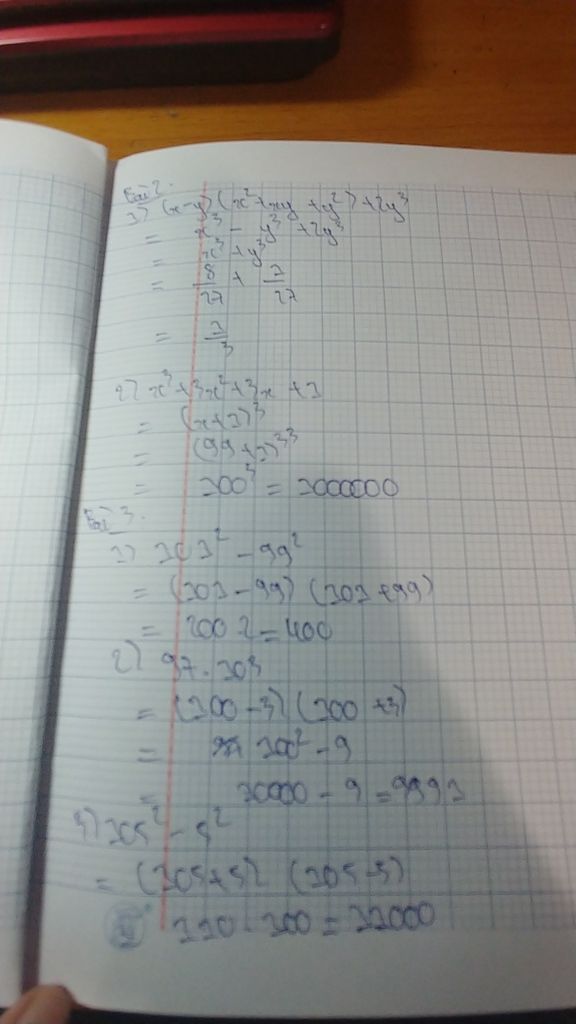 Bài 2.
1) (x-y)(x²+xy+y²)+2y³
= x³ - y³ +2y³
= x³ + y³
= 8/27 + 1/27
= 1/3
2) x³+3x²+3x+1
= (x+1)³
= (99+1)³³
= 100³ = 1000000
Bài 3.
1) 101² - 99²
= (101-99)(101+99)
= 200.2=400
2) 97.103
= (100-3)(100+3)
= 100²-9
= 10000-9=9991
3) 105²-5²
= (105+5).(105-5)
110.100=11000